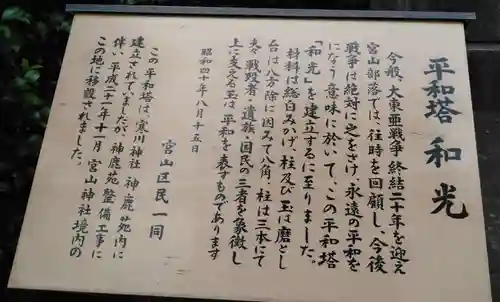 平和塔 和光
今般、大東亜戦争終結二十年を迎え
宮山部落では、往時を回顧し、今後
戦争は絶対に之をさけ、永遠の平和を
になう意味に於いて、この平和塔
「和光」を建立するに至りました。
材料は総白みかげ、柱及び玉は磨とし
台は八方除に因みて八角、柱は三本にて
夫々戦殁者・遺族・国民の三者を象徴し
上に支える玉は平和を表すものであります
昭和四十年八月十五日
宮山区民一同
この平和塔は、寒川神社神鹿苑内に
建立されていましたが、神鹿苑整備工事に
伴い平成二十一年十一月宮山神社境内の
この地に移設されました。